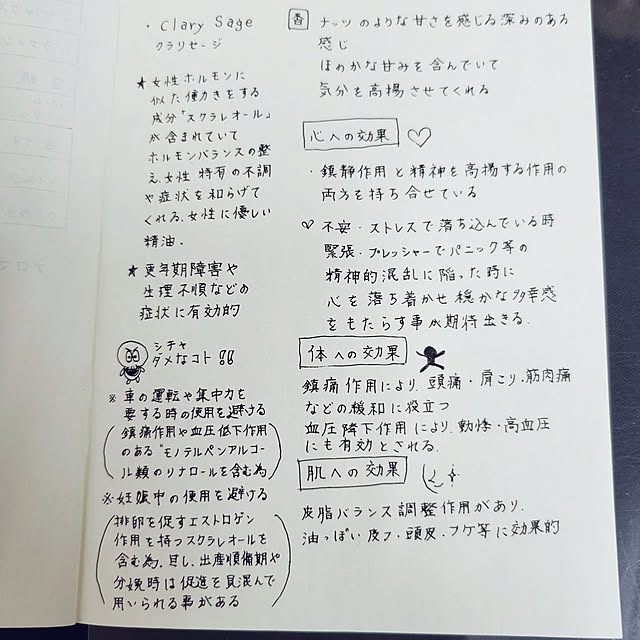 ・Clary Sage
クラリセージ
★女性ホルモンに
似た働きをする
成分「スクラレオール」
が含まれていて
ホルモンバランスの整
え、女性特有の不調
や症状を和らげて
くれる、女性に優しい
精油。
★更年期障害や
生理不順などの
症状に有効的
シチャ
ダメなコト!!
※車の運転や集中力を
要する時の使用を避ける
(鎮痛作用や血圧低下作用
のある"モノテルペンアルコー
ル類のリナロールを含む為)
※妊娠中の使用を避ける
(排卵を促すエストロゲン
作用を持つスクラレオールを
含む為。旦し、出産準備期や
分娩時は促進を見混んで
用いられる事がある)
香 ナッツのような甘さを感じる深みのある
感じ
ほのかな甘みを含んでいて
気分を高揚させてくれる
心への効果
・鎮静作用と精神を高揚する作用の
両方を持ち合せている
♡不安・ストレスで落ち込んでいる時
緊張・プレッシャーでパニック等の
精神的混乱に陥った時に
心を落ち着かせ穏かな多幸感
をもたらす事が期待出きる.
体への効果
鎮痛作用により、頭痛・肩こり・筋肉痛
などの緩和に役立つ
血圧降下作用により、動悸・高血圧
にも有効とされる.
肌への効果
皮脂バランス調整作用があり、
油っぽい皮フ・頭皮・フケ等に効果的